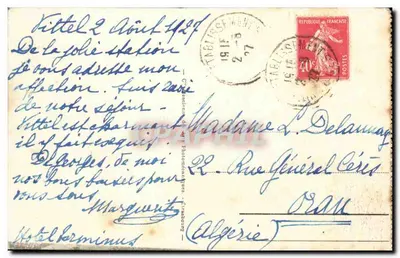 Vittel 2 Août 1927
De la jolie station
je vous adresse mon
affection. Suis ravie
de notre séjour.
Vittel est charmant
il y fait exquis.
De Georges, de moi
nos bons baisers pour
vous tous.
Marguerite
Hotel Terminus
ETABLISSEMENT
19 15
2 - 8
27
REPUBLIQUE FRANÇAISE
POSTES
Madame L. Delaunay
22 Rue Général Céris
Oran
(Algérie)